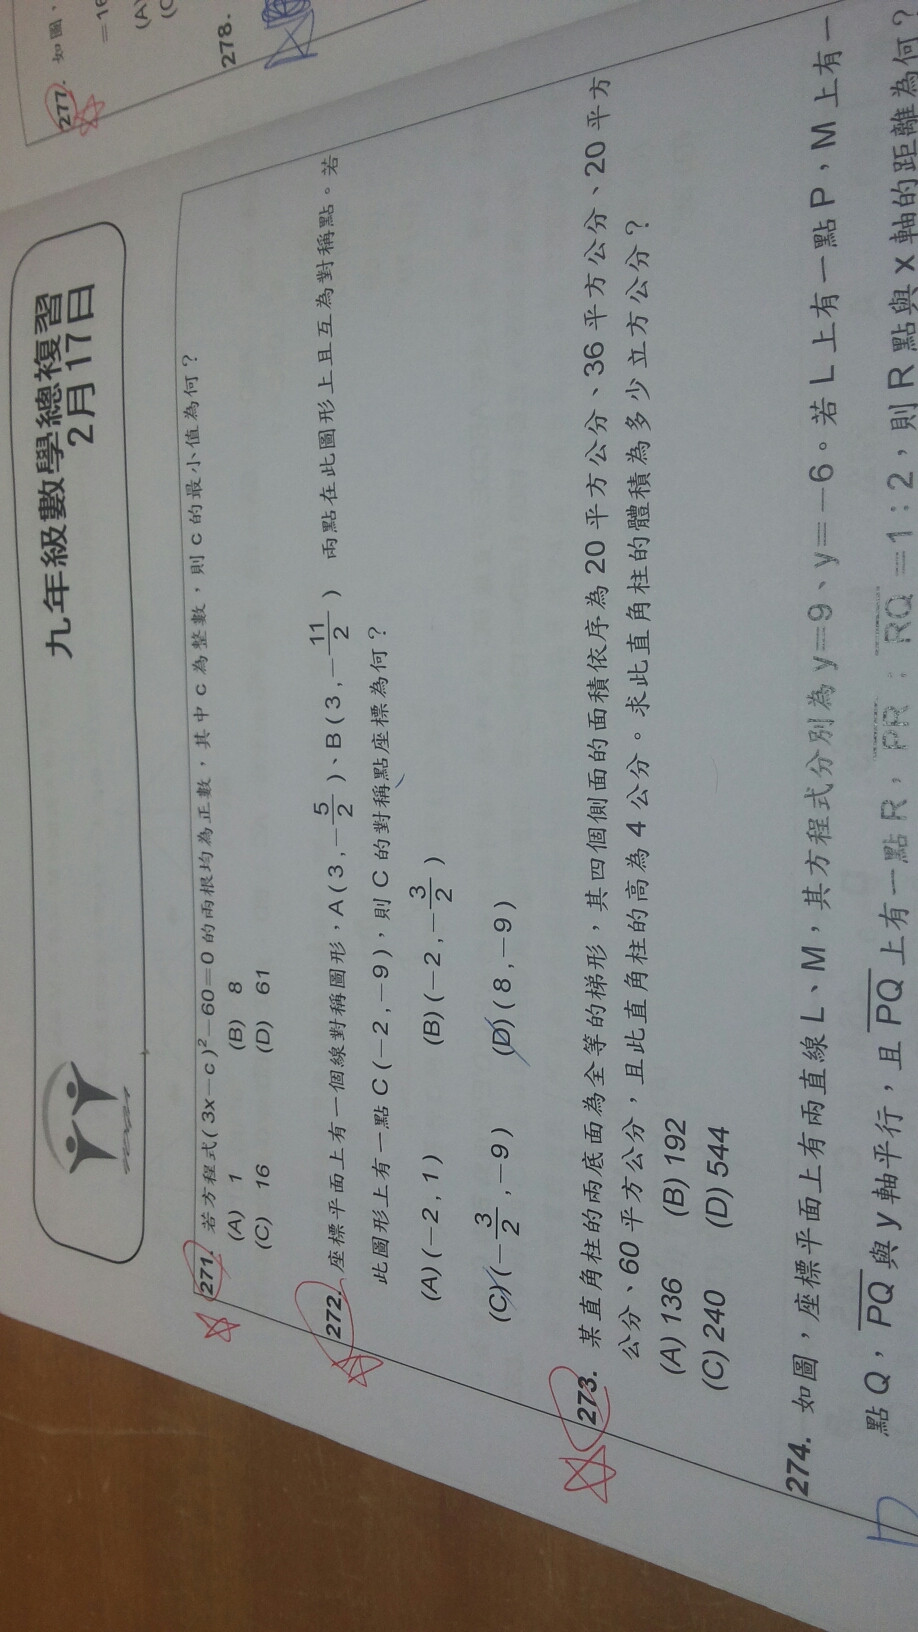 九年級數學總複習
2月17日
271. 若方程式(3x－c)²－60＝0的兩根均為正數，其中c為整數，則c的最小值為何？
(A) 1 (B) 8
(C) 16 (D) 61
272. 座標平面上有一個線對稱圖形，A(3,－5/2)、B(3,－11/2) 兩點在此圖形上且互為對稱點。若
此圖形上有一點C(－2,－9)，則C的對稱點座標為何？
(A)(－2,1) (B)(－2,－3/2)
(C)(－3/2,－9) (D)(8,－9)
273. 某直角柱的兩底面為全等的梯形，其四個側面的面積依序為20平方公分、36平方公分、20平方
公分、60平方公分，且此直角柱的高為4公分。求此直角柱的體積為多少立方公分？
(A)136 (B)192
(C)240 (D)544
274. 如圖，座標平面上有兩直線L、M，其方程式分別為y＝9、y＝－6。若L上有一點P，M上有一
點Q，PQ與y軸平行，且PQ上有一點R，PR：RQ＝1：2，則R點與x軸的距離為何？
277. 如圖、
＝16
(A)
278.